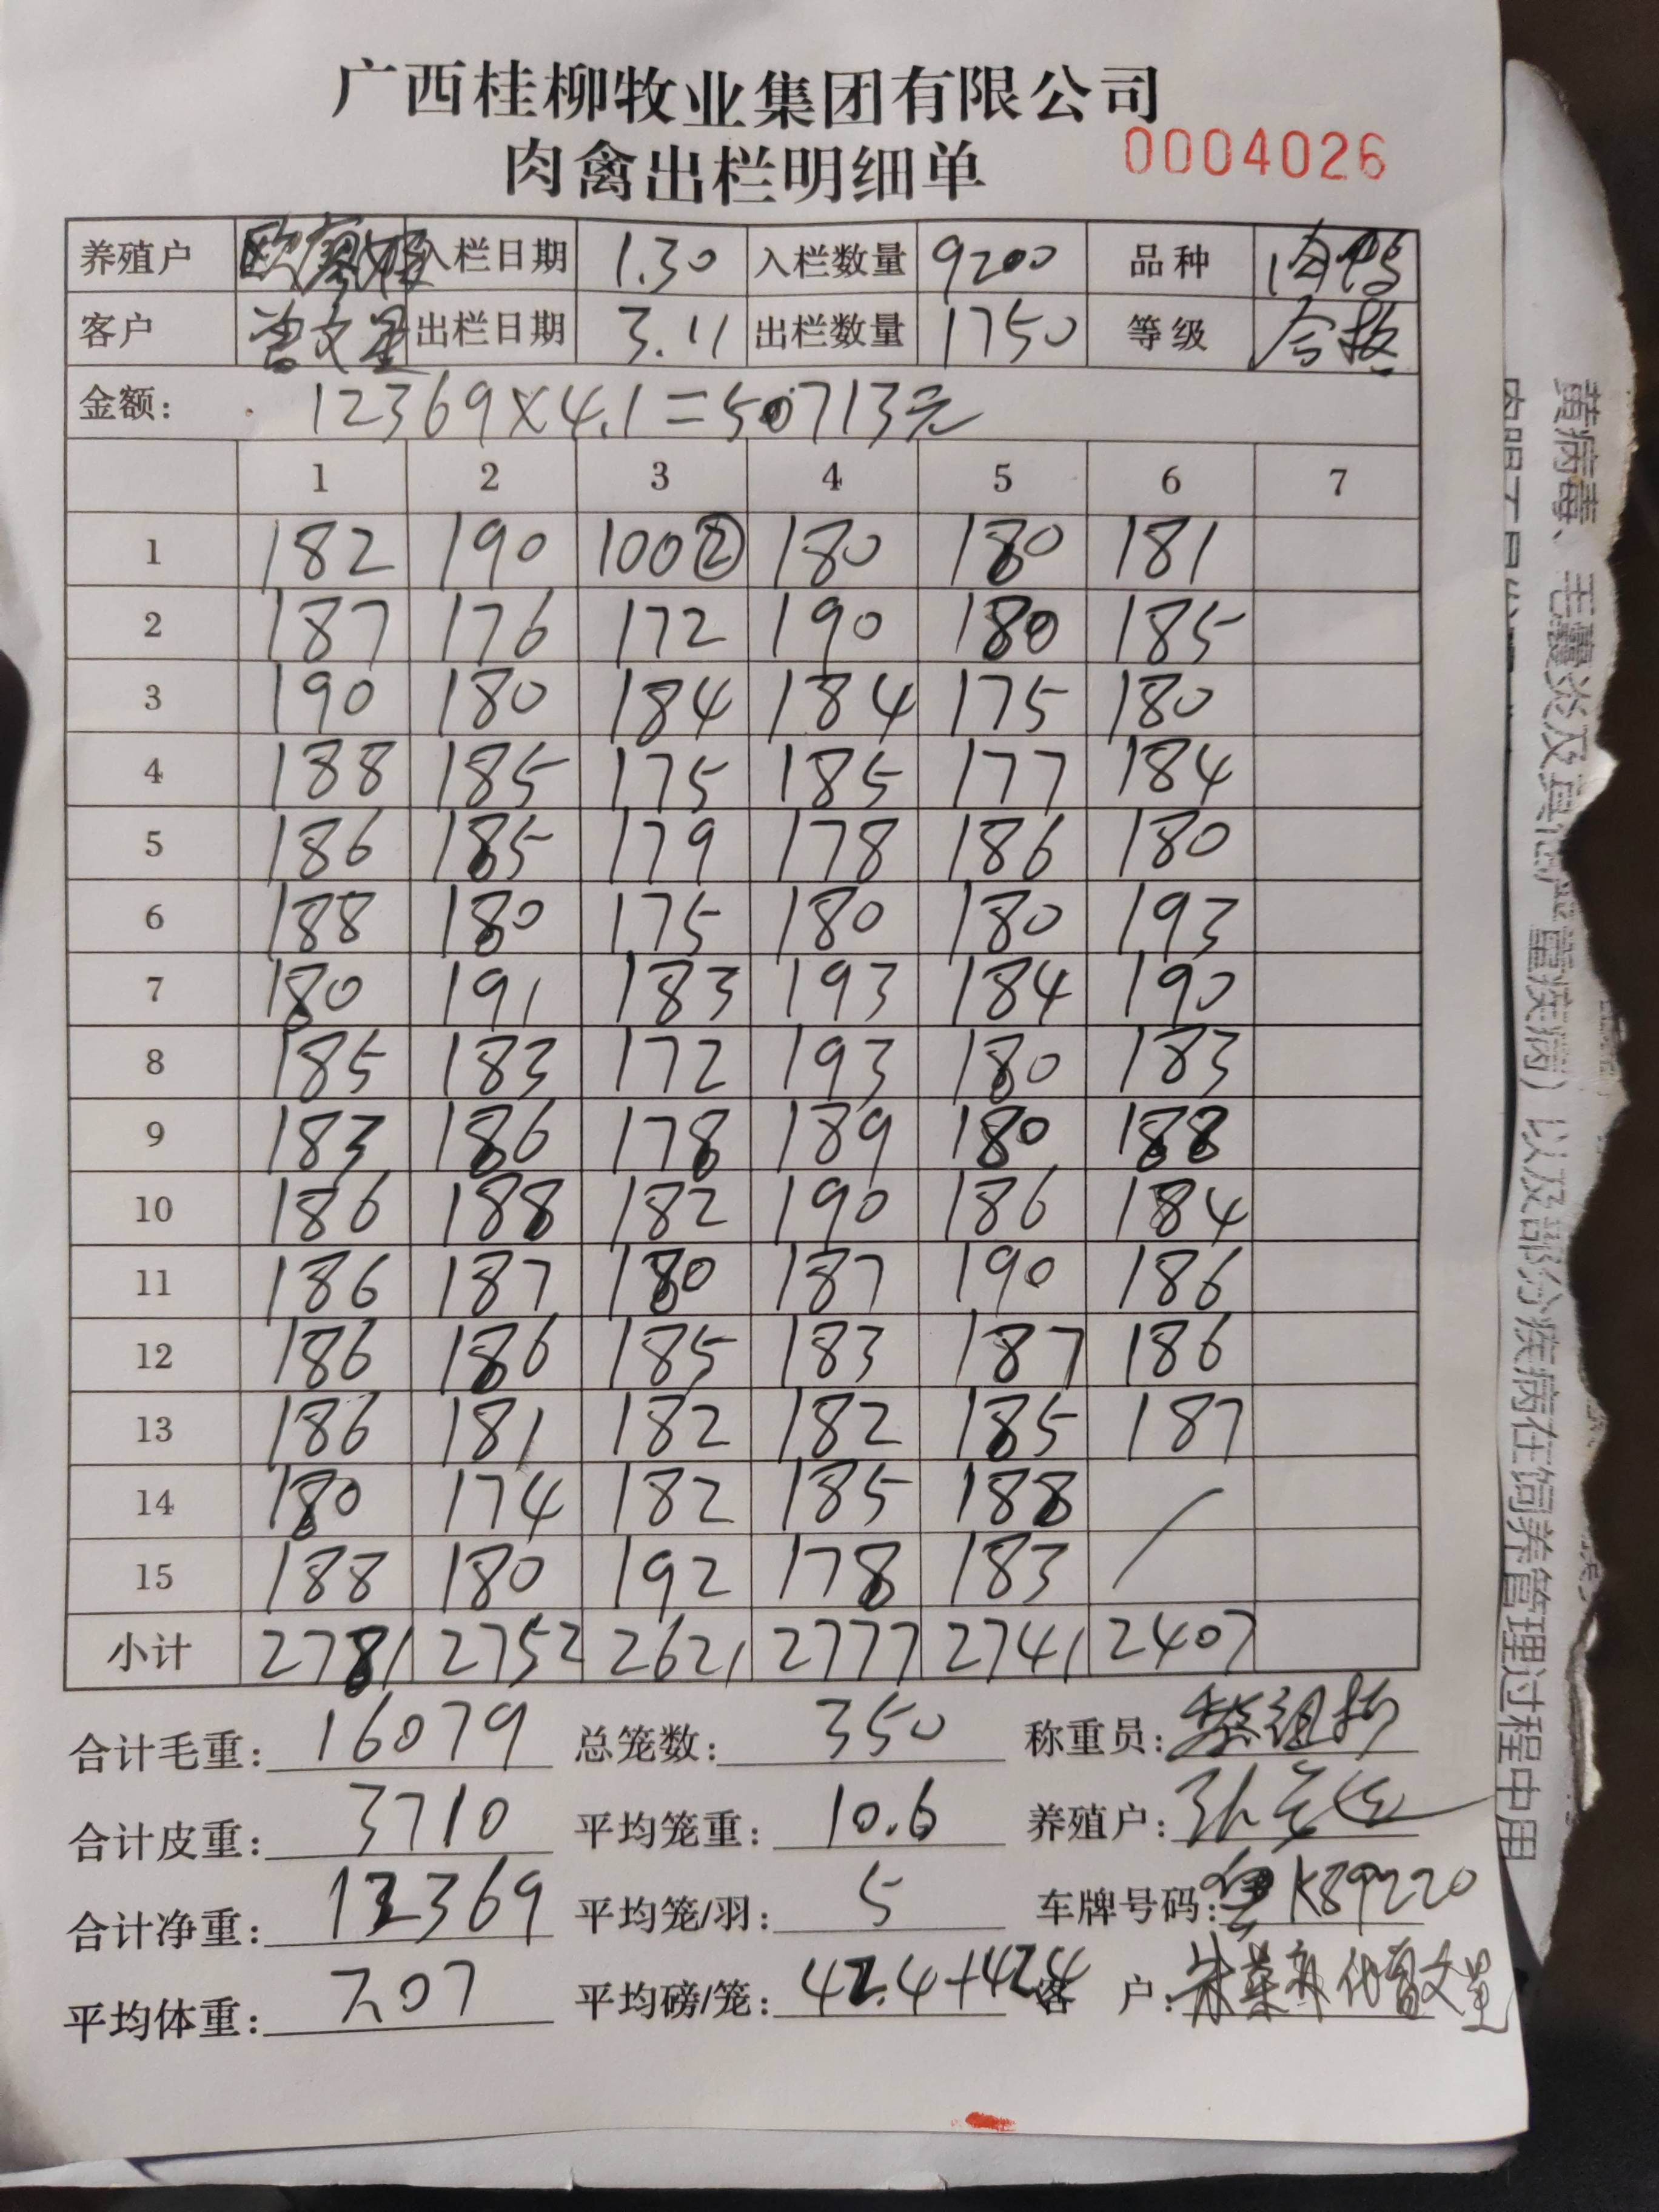 广西桂柳牧业集团有限公司
肉禽出栏明细单 0004026
养殖户 入栏日期 1.30 入栏数量 9200 品种 肉鸭
客户 曾文星 出栏日期 3.11 出栏数量 1750 等级 合格
金额: 12369×4.1=50713元
1 2 3 4 5 6 7
1 182 190 100② 180 180 181
2 187 176 172 190 180 185
3 190 180 184 184 175 180
4 188 185 175 185 177 184
5 186 185 179 178 186 180
6 188 180 175 180 180 193
7 180 191 183 193 184 190
8 185 183 172 193 180 183
9 183 186 178 189 180 188
10 186 188 182 190 186 184
11 186 187 180 187 190 186
12 186 186 185 183 187 186
13 186 181 182 182 185 187
14 180 174 182 185 188
15 188 180 192 178 183
小计 2781 2752 2621 2777 2741 2407
合计毛重: 16079 总笼数: 350 称重员:
合计皮重: 3710 平均笼重: 10.6 养殖户:
合计净重: 12369 平均笼/羽: 5 车牌号码: K89220
平均体重: 7.07 平均磅/笼: 42.4+42.4 客 户:
黄病毒、毛囊炎及其他严重疾病）以及部分疾病在饲养管理过程中用